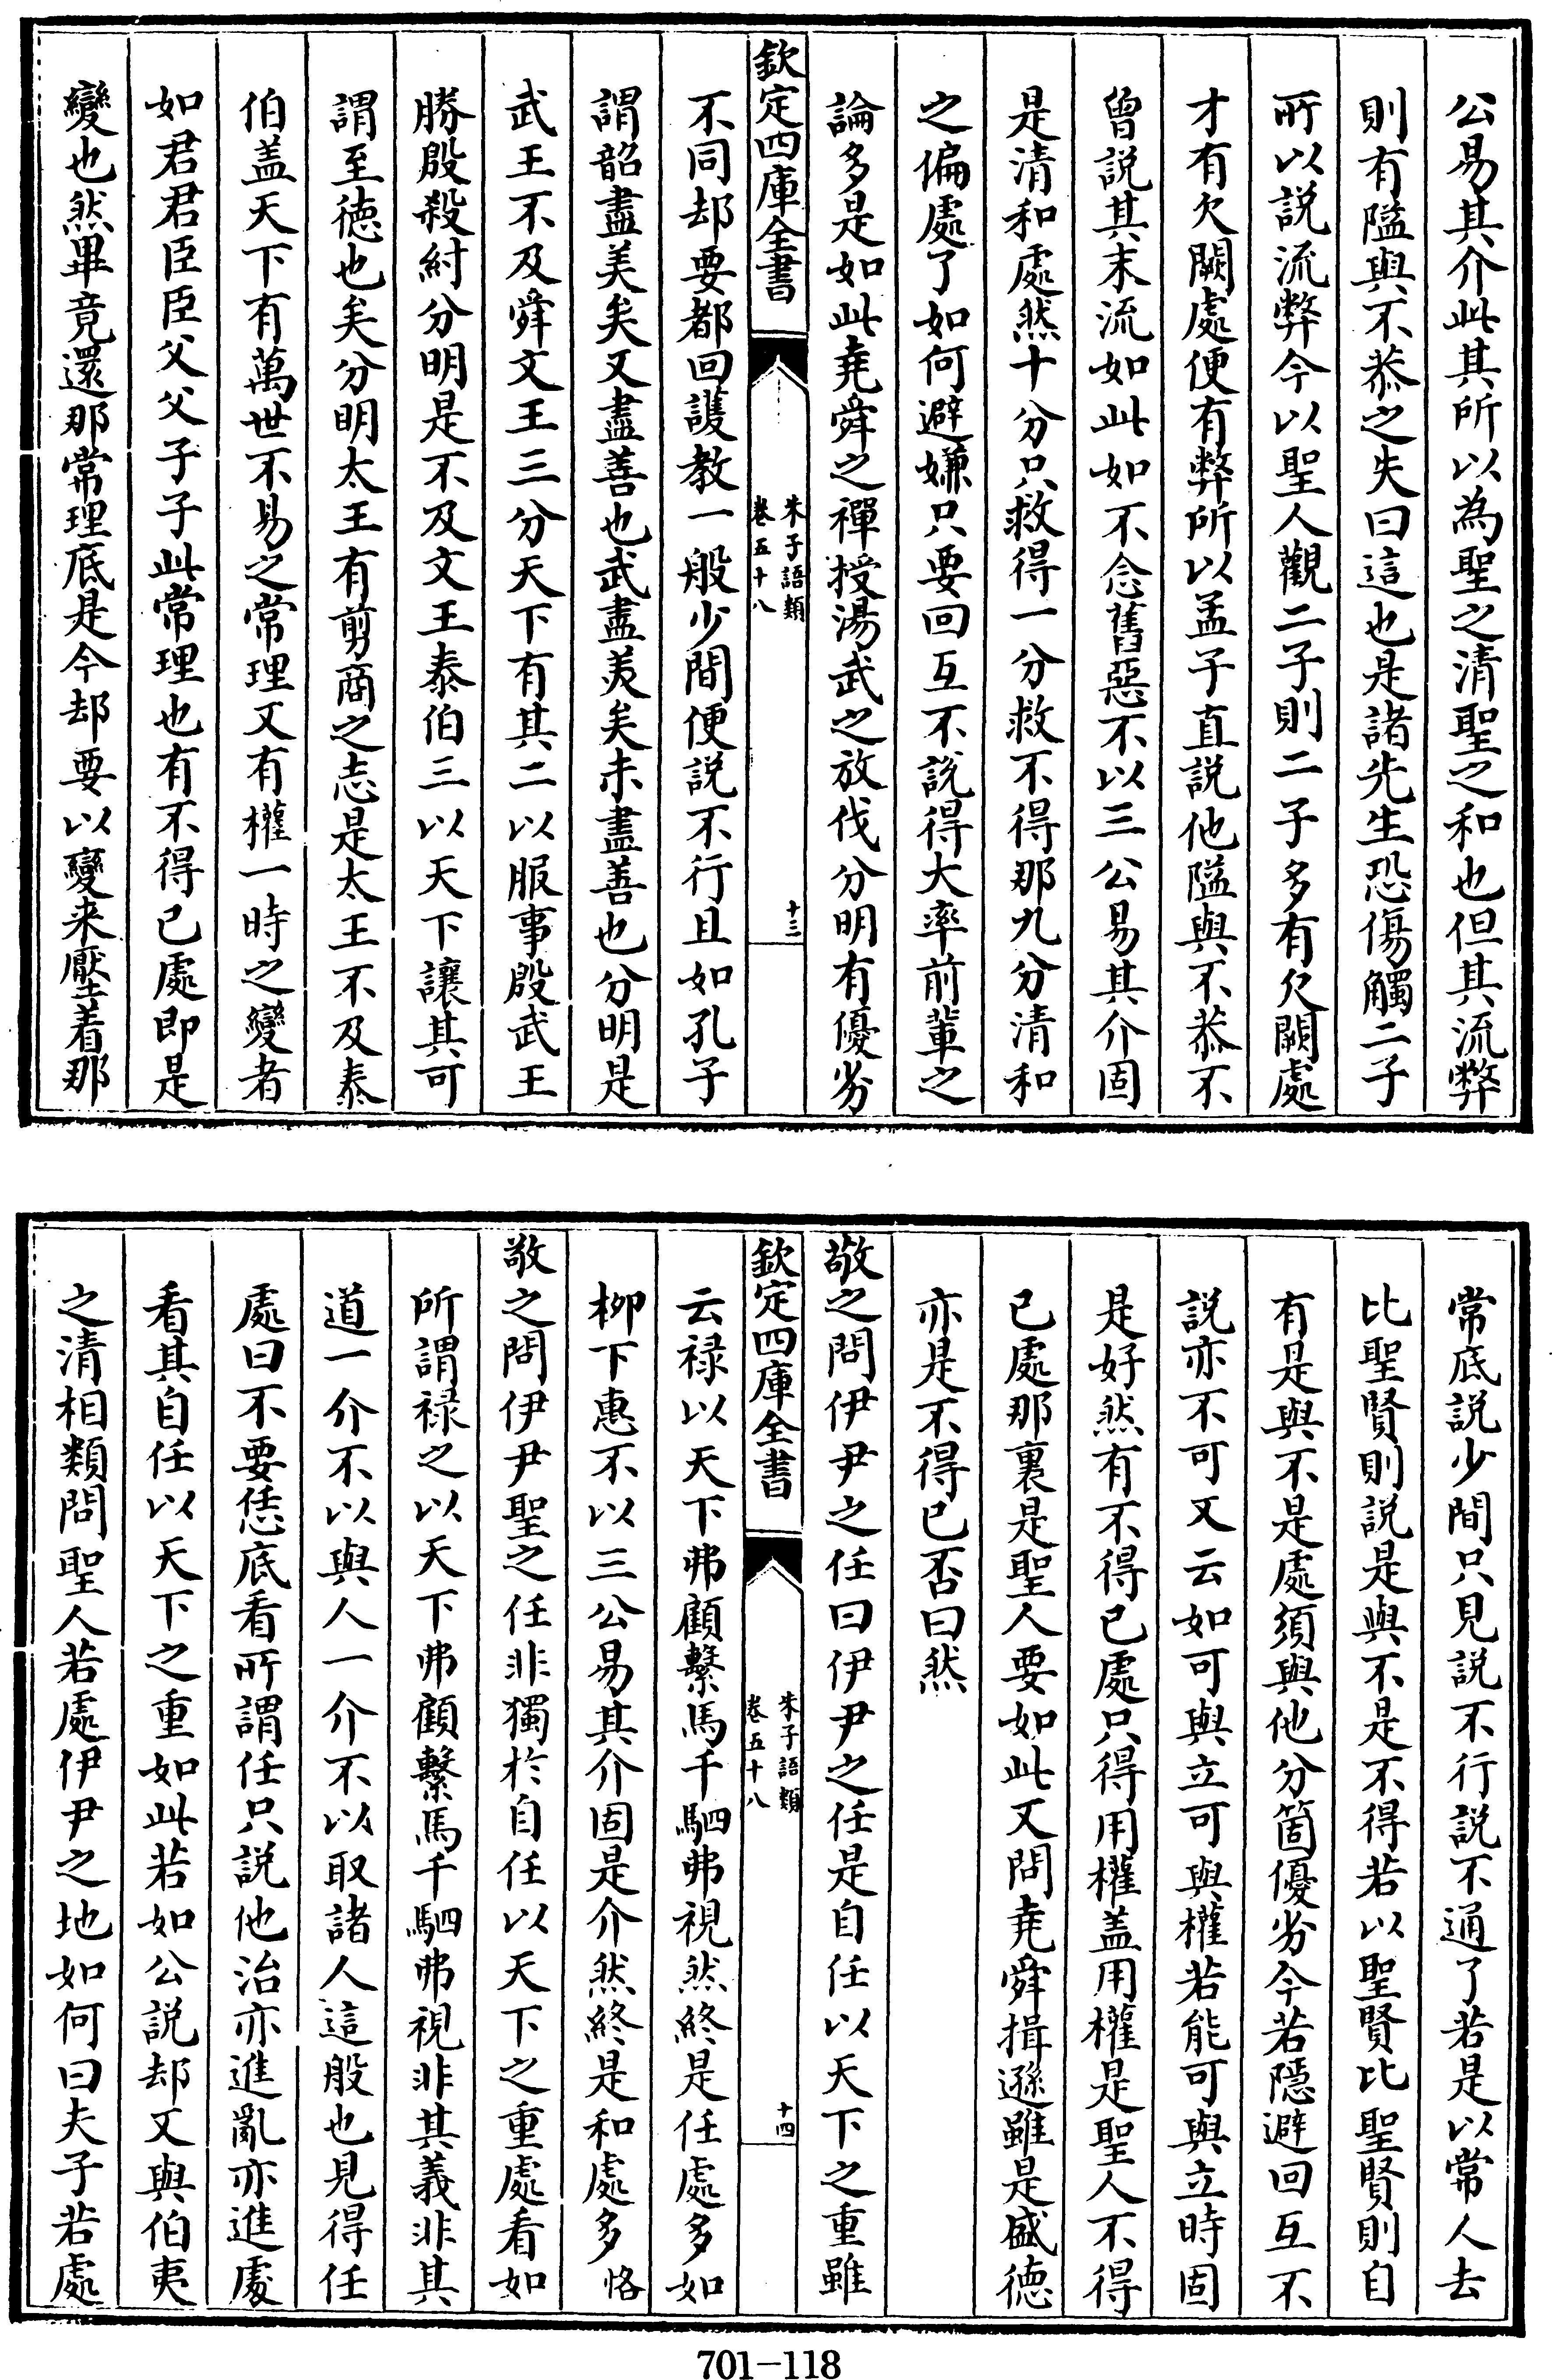 公易其介此其所以為聖之清聖之和也但其流弊
則有隘與不恭之失曰這也是諸先生恐傷觸二子
所以説流弊今以聖人觀二子則二子多有欠闕處
才有欠闕處便有弊所以孟子直説他隘與不恭不
曾説其末流如此如不念舊惡不以三公易其介固
是清和處然十分只救得一分救不得那九分清和
之偏處了如何避嫌只要回互不説得大率前輩之
論多是如此堯舜之禪授湯武之放伐分明有優劣
欽定四庫全書
朱子語類
卷五十八
十三
不同却要都回護教一般少間便説不行且如孔子
謂韶盡美矣又盡善也武盡美矣未盡善也分明是
武王不及舜文王三分天下有其二以服事殷武王
勝殷殺紂分明是不及文王泰伯三以天下讓其可
謂至德也矣分明太王有剪商之志是太王不及泰
伯盖天下有萬世不易之常理又有權一時之變者
如君君臣臣父父子子此常理也有不得已處即是
變也然畢竟還那常理底是今却要以變来壓着那
常底説少間只見説不行説不通了若是以常人去
比聖賢則説是與不是不得若以聖賢比聖賢則自
有是與不是處須與他分箇優劣今若隱避回互不
説亦不可又云如可與立可與權若能可與立時固
是好然有不得已處只得用權盖用權是聖人不得
已處那裏是聖人要如此又問堯舜揖遜雖是盛德
亦是不得已否曰然
敬之問伊尹之任曰伊尹之任是自任以天下之重雖
欽定四庫全書
朱子語類
卷五十八
十四
云祿以天下弗顧繫馬千駟弗視然終是任處多如
柳下惠不以三公易其介固是介然終是和處多 恪
敬之問伊尹聖之任非獨於自任以天下之重處看如
所謂祿之以天下弗顧繫馬千駟弗視非其義非其
道一介不以與人一介不以取諸人這般也見得任
處曰不要恁底看所謂任只説他治亦進亂亦進處
看其自任以天下之重如此若如公説却又與伯夷
之清相類問聖人若處伊尹之地如何曰夫子若處
701-118